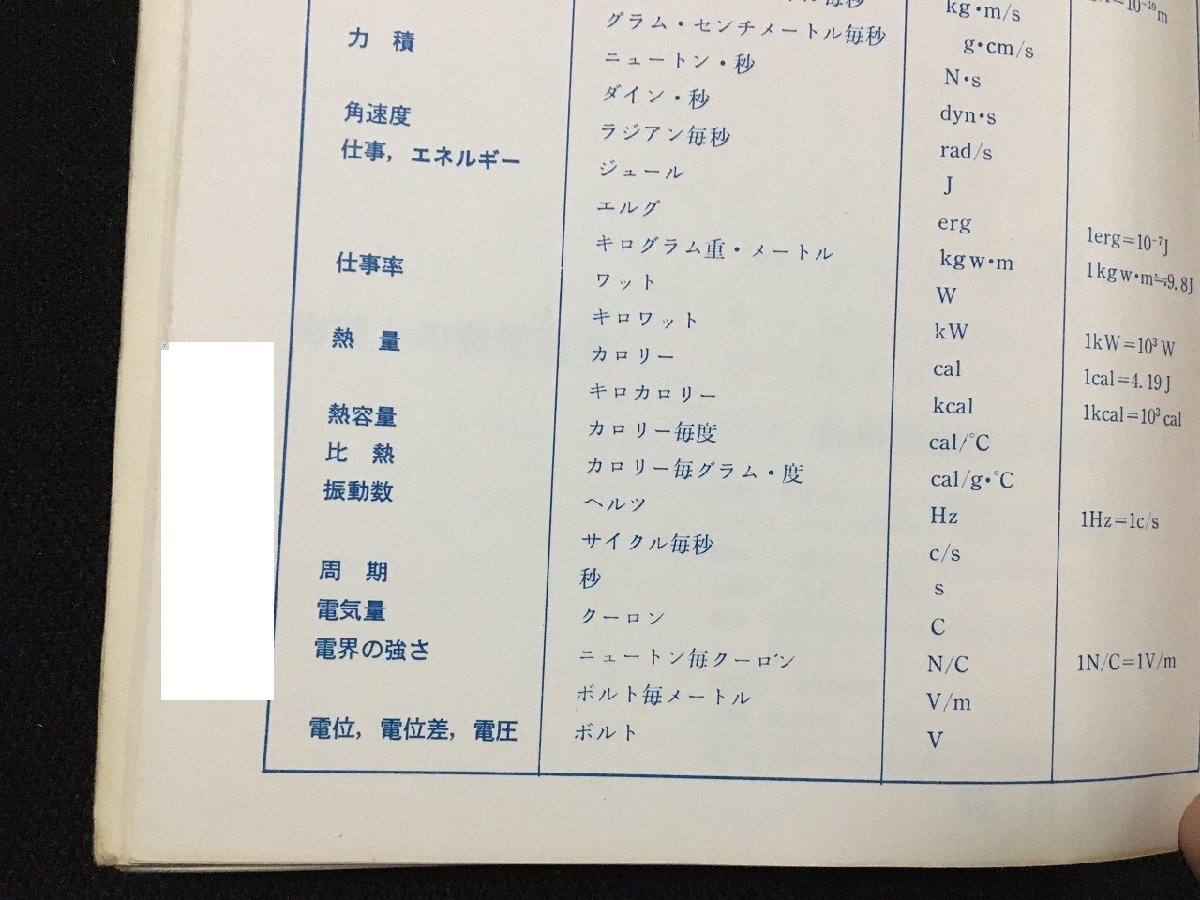 kg・m/s
グラム・センチメートル毎秒 g・cm/s
力積 ニュートン・秒 N・s
ダイン・秒 dyn・s
角速度 ラジアン毎秒 rad/s
仕事，エネルギー ジュール J
エルグ erg 1erg=10⁻⁷J
キログラム重・メートル kgw・m 1kgw・m≒9.8J
仕事率 ワット W
キロワット kW 1kW=10³W
熱量 カロリー cal 1cal=4.19J
キロカロリー kcal 1kcal=10³cal
熱容量 カロリー毎度 cal/°C
比熱 カロリー毎グラム・度 cal/g・°C
振動数 ヘルツ Hz 1Hz=1c/s
サイクル毎秒 c/s
周期 秒 s
電気量 クーロン C
電界の強さ ニュートン毎クーロン N/C 1N/C=1V/m
ボルト毎メートル V/m
電位，電位差，電圧 ボルト V